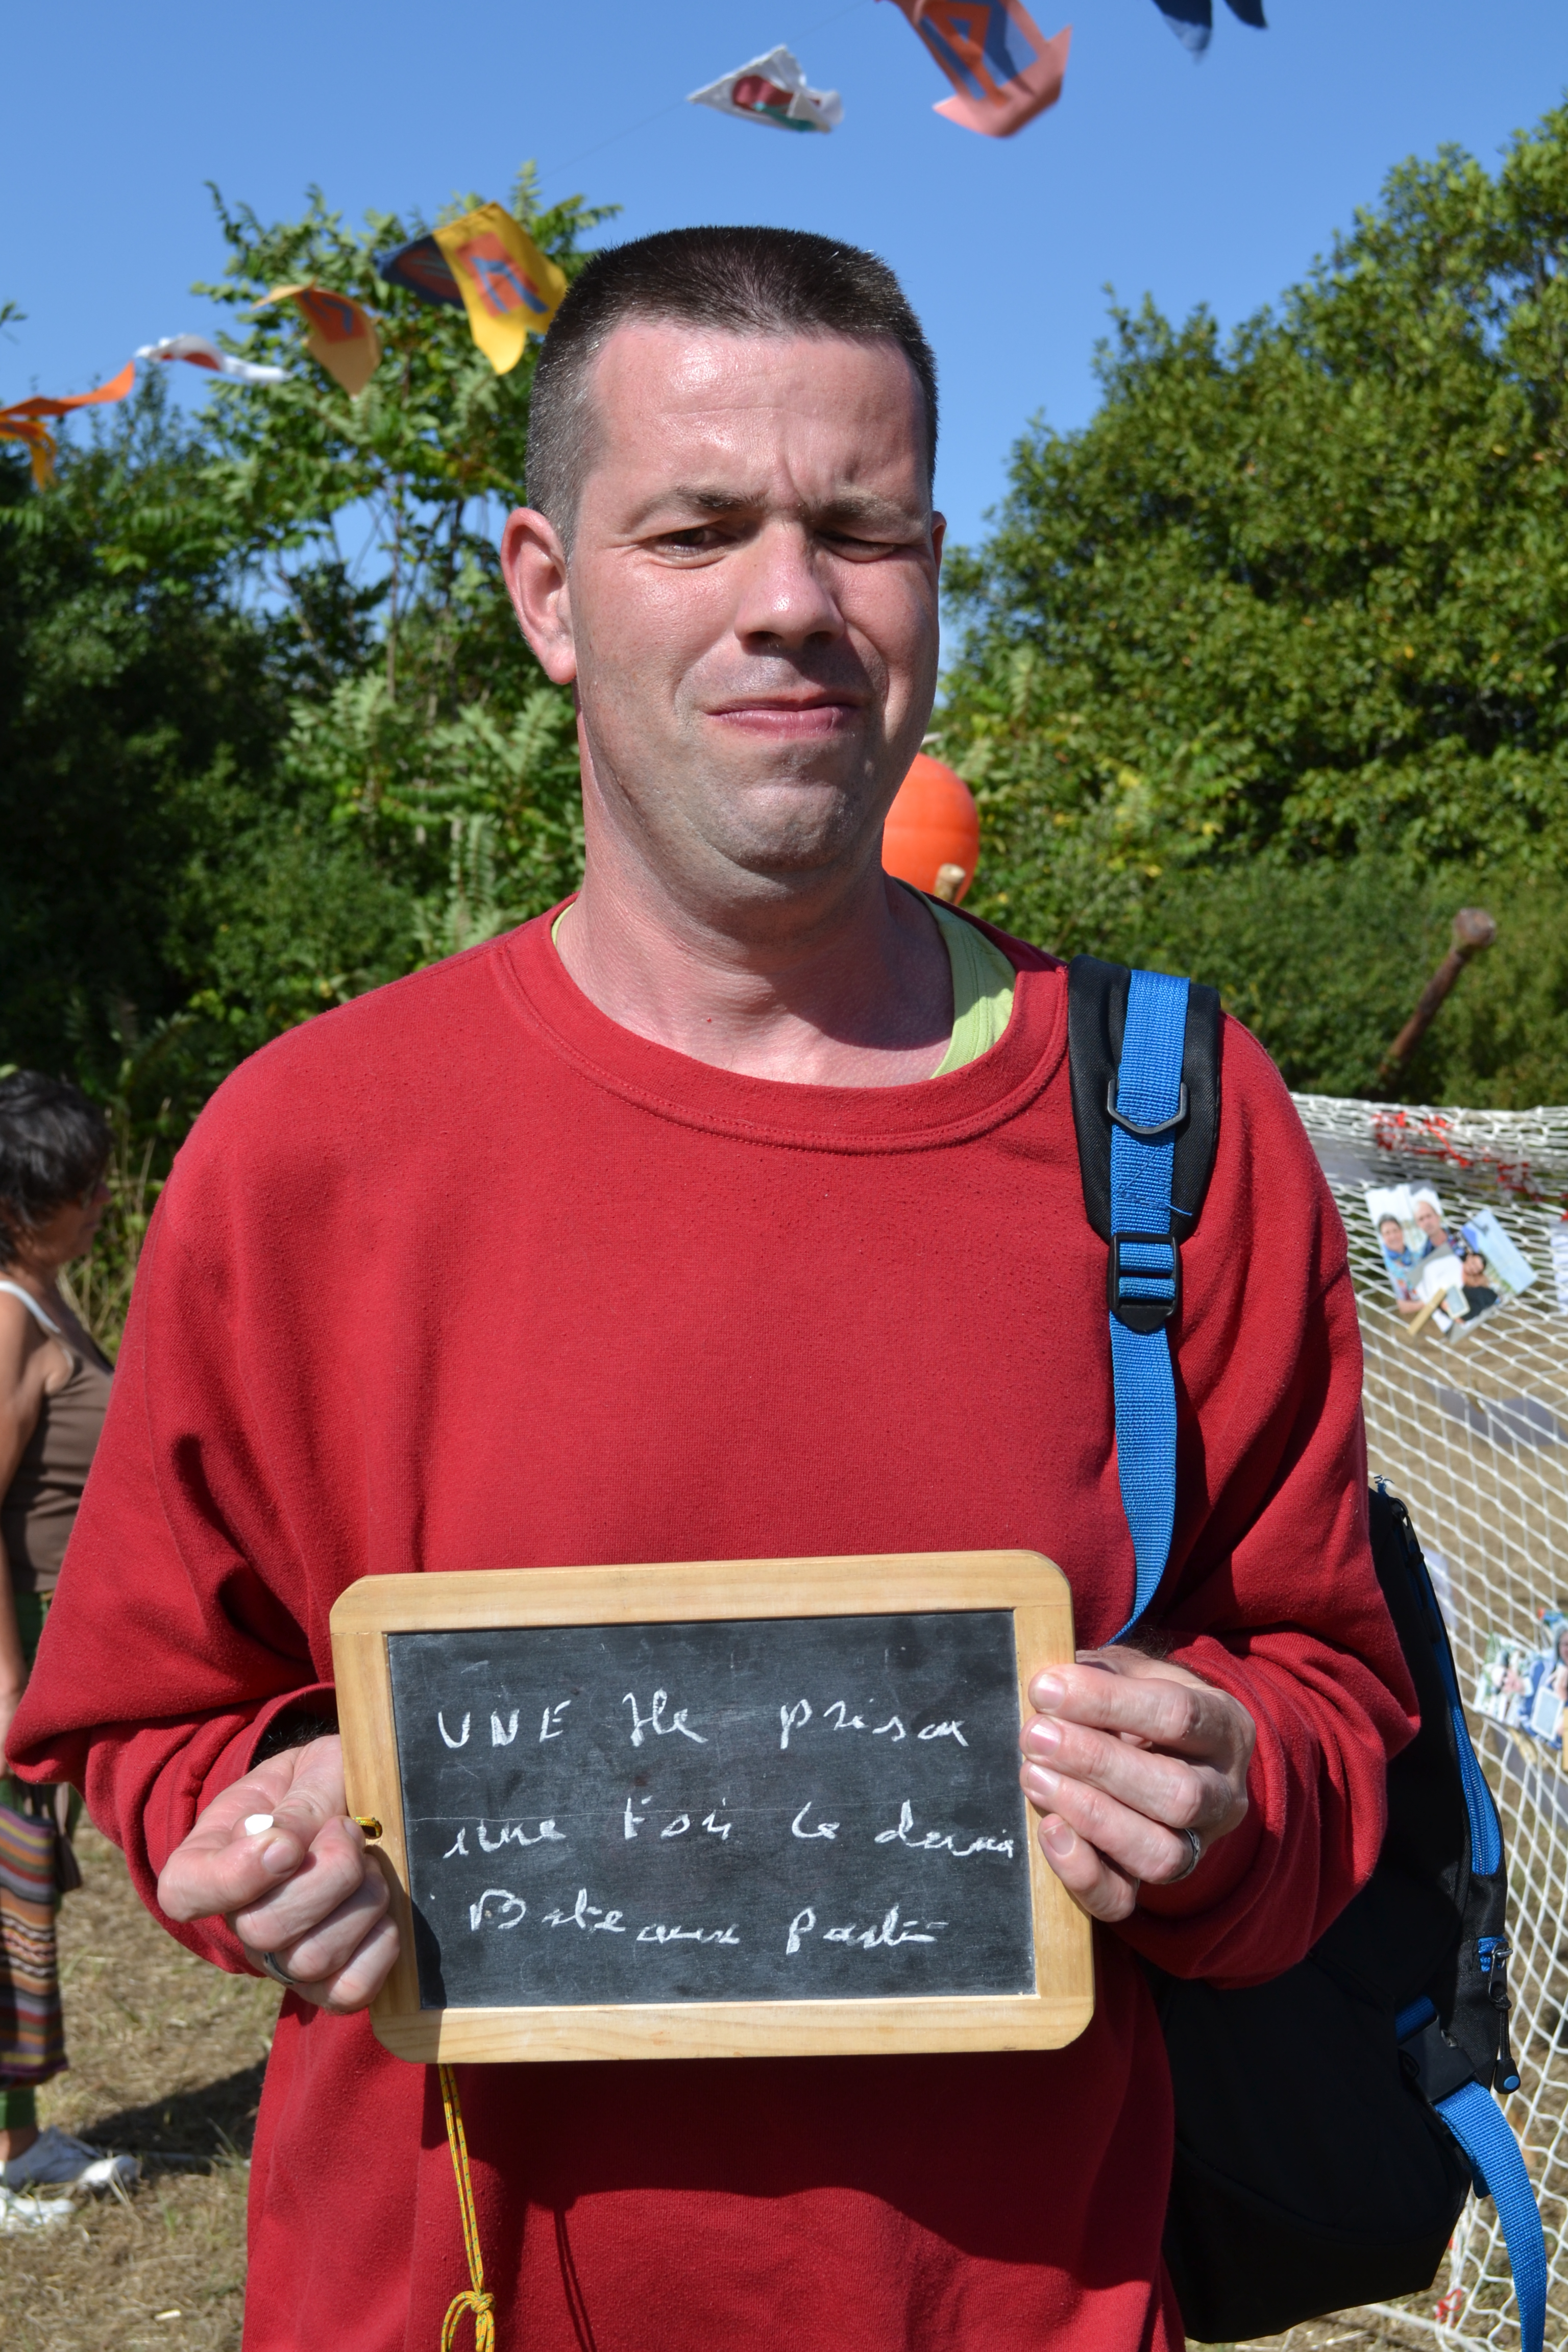 UNE Ile prison
une Fois le dernier
Bateaux partie